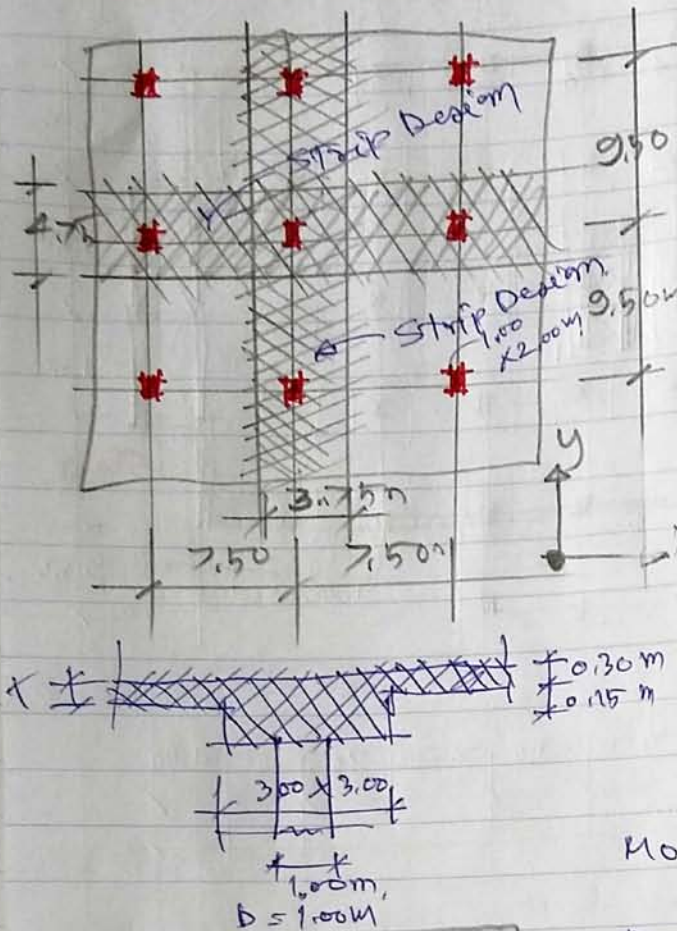 Strip Design
9.50
4.75
Strip Design
1.00
×2.00m
9.50m
y
3.75m
7.50
7.50m
0.30 m
0.15 m
3.00 × 3.00
1.00m,
D = 1.00M